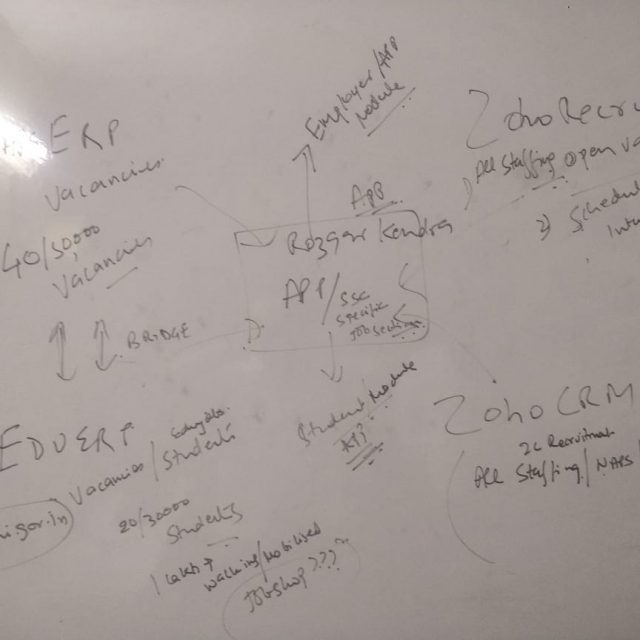 ERP
Vacancies
40/50,000
Vacancies
BRIDGE
EDUERP
Vacancies/Students
20/30000
Students
1 Lakh+
Walkin/Mobilised
Jobshop???
Employer/APP
Module
APP
Rozgar Kendra
APP/SSC
Specific
Student Module
API
Zoho Recru
1) All Staffing open Va
2) Schedul
Inte
Zoho CRM
2L Recruitment
All Staffing/NAPS